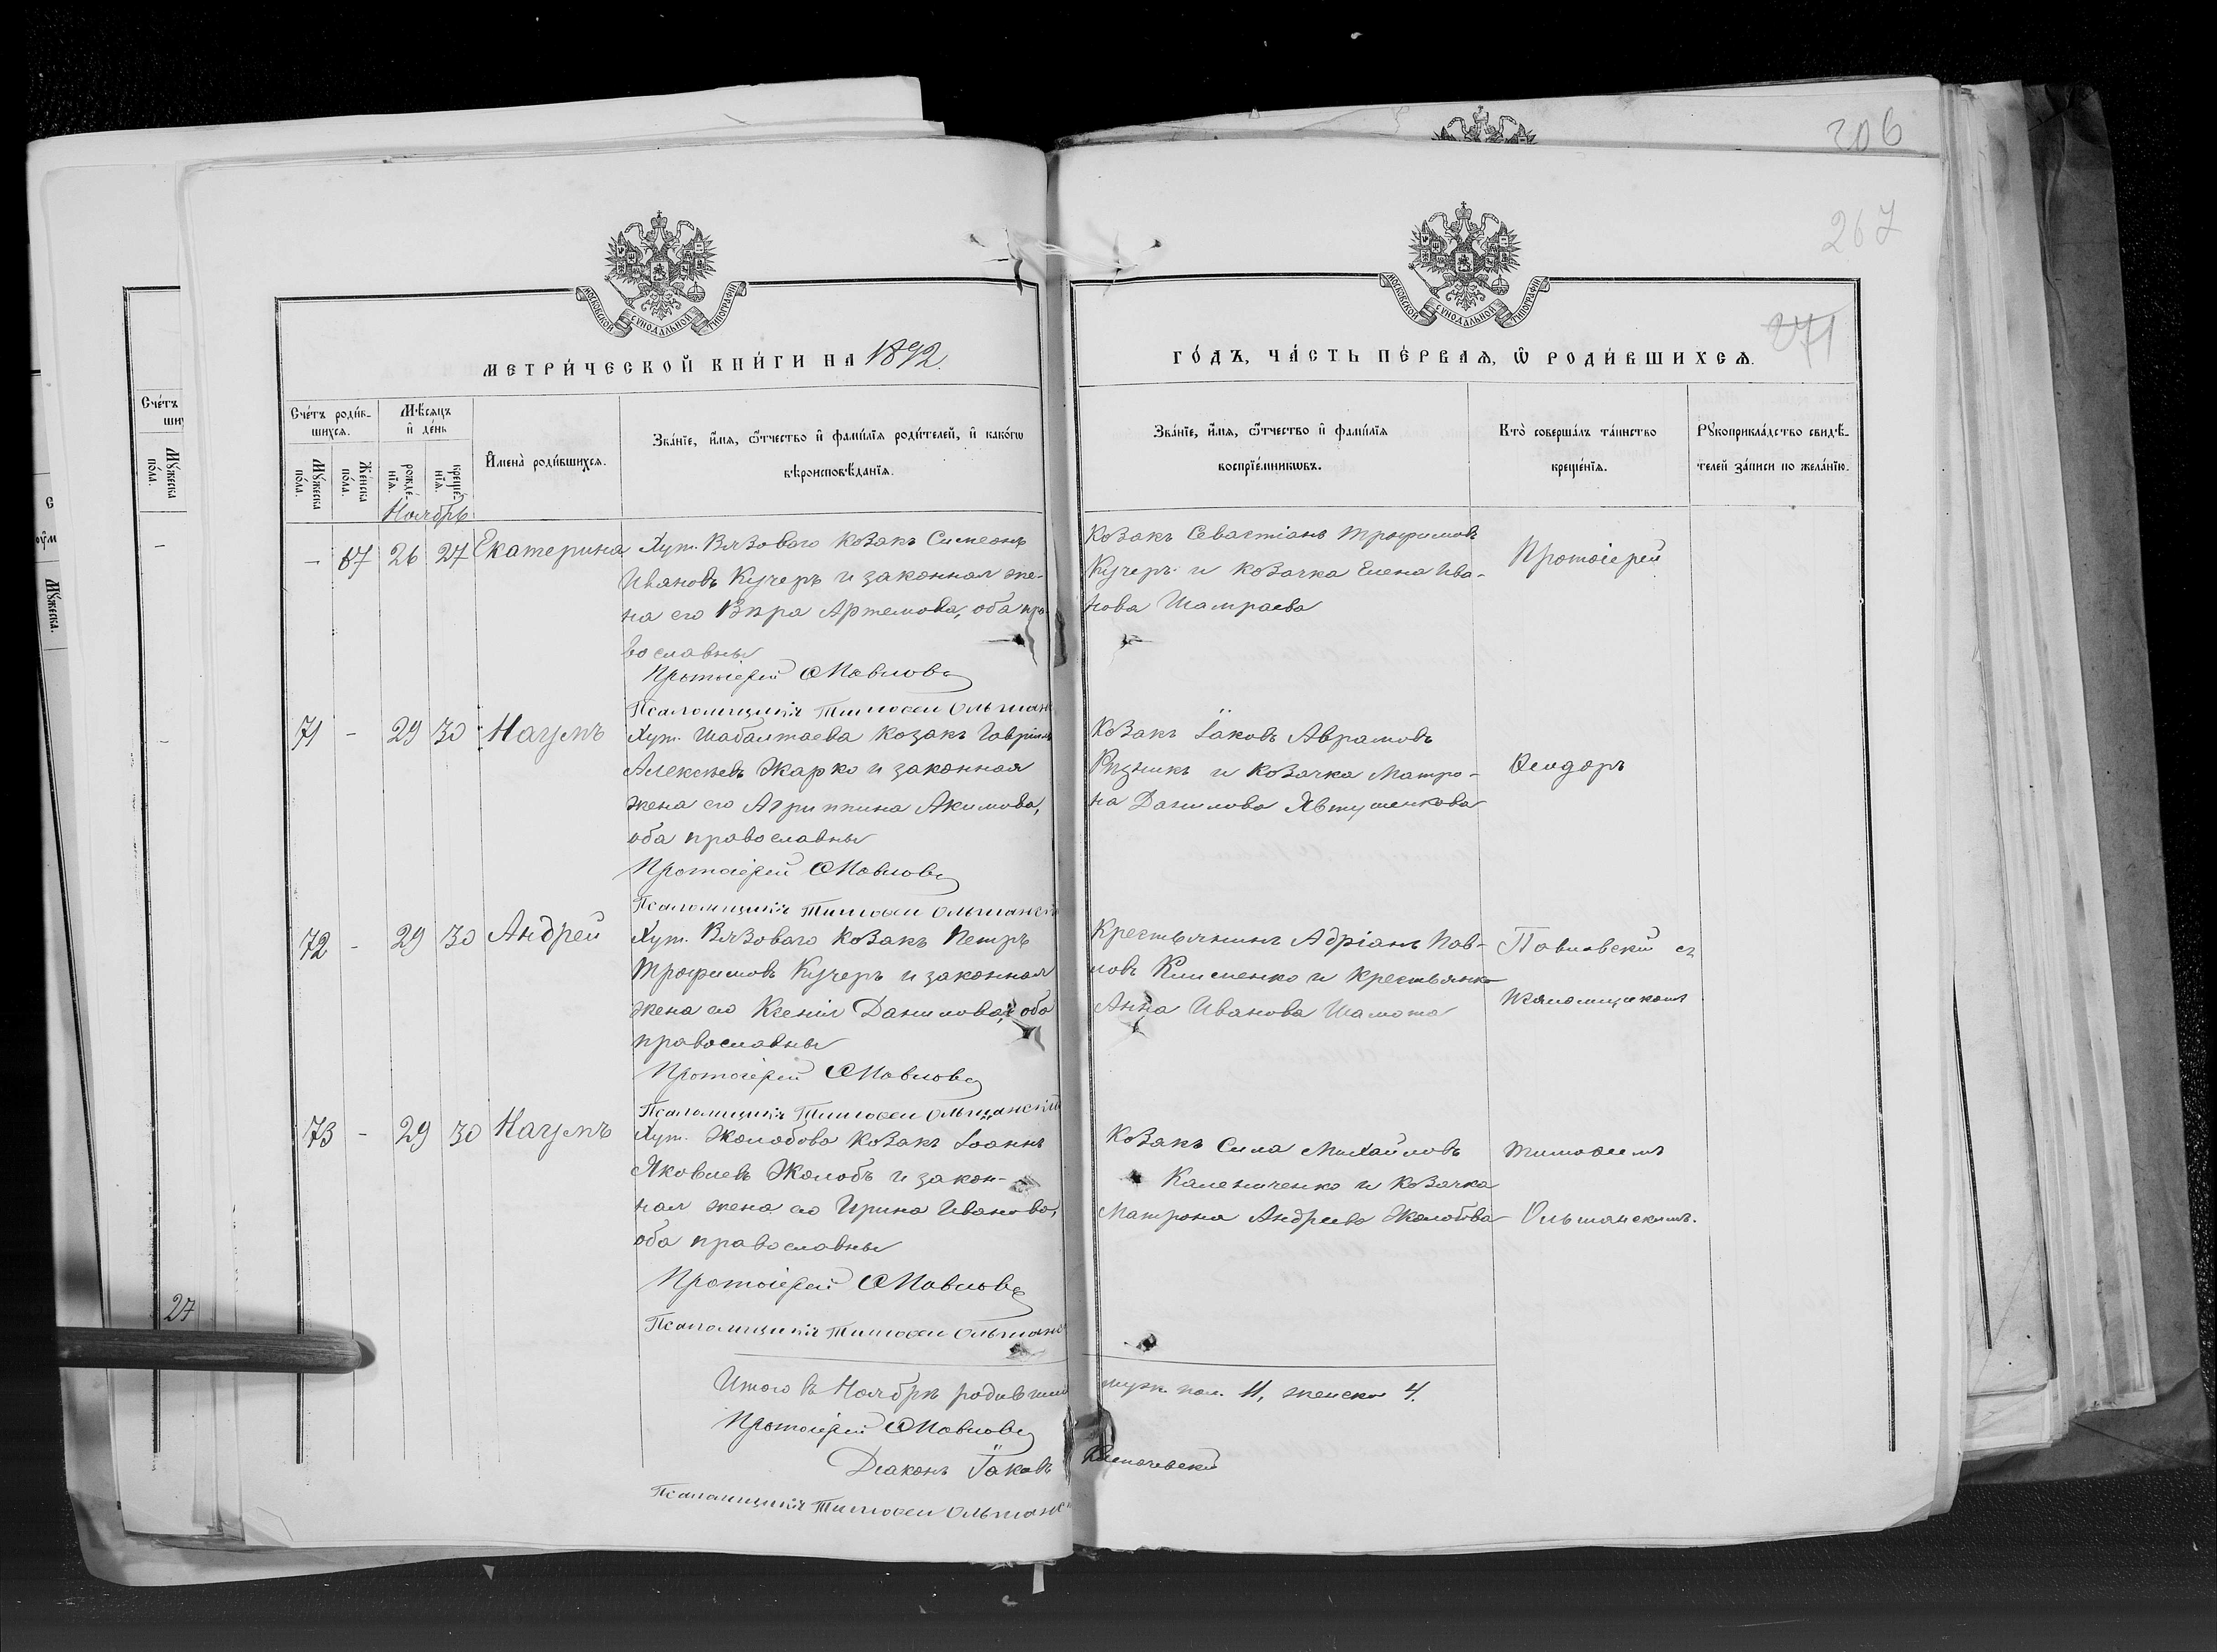 206
267
271
МОСКОВСКОЙ СѴНОДАЛЬНОЙ ТИПОГРАФІИ
МОСКОВСКОЙ СѴНОДАЛЬНОЙ ТИПОГРАФІИ
МЕТРИ́ЧЕСКОЙ КНИ́ГИ НА 1892.
ГО́ДЪ, ЧА́СТЬ ПЕ́РВАЯ, Ѡ РОДИ́ВШИХСЯ.
Сче́тъ роди́вшихся.
Му́жеска по́ла.
Же́нска по́ла.
Мѣ́сяцъ и де́нь
рожде́нія.
креще́нія.
Имена̀ роди́вшихся.
Зва́ніе, и́мя, ѻ҆́тчество и фамі́лія роди́телей, и како́гѡ
вѣроисповѣ́данія.
Зва́ніе, и́мя, ѻ҆́тчество и фамі́лія
воспріе́мникѡвъ.
Кто̀ соверша́лъ та́инство
креще́нія.
Рꙋкоприкла́дство свидѣ́-
телей за́писи по жела́нію.
Ноябрь
— 67 26 27 Екатерина
Хут. Вязоваго козакъ Симеонъ
Ивановъ Кучеръ и законная же-
на его Вѣра Артемова, оба пра-
вославны
Протоіерей Ѳ Павловс
Псаломщикъ Тимоѳей Ольшан
Козакъ Севастіанъ Трофимовъ
Кучеръ и козачка Елена Ива-
нова Шамраева
Протоіерей
71 - 29 30 Наумъ
Хут. Шабалтаева козакъ Гавріилъ
Алексѣевъ Жарко и законная
жена его Агриппина Акимова,
оба православны
Протоіерей Ѳ Павловс
Псаломщикъ Тимоѳей Ольшанскі
Козакъ Іаковъ Аврамовъ
Рѣзникъ и козачка Матро-
на Данилова Явтушенкова
Ѳеодоръ
72 - 29 30 Андрей
Хут. Вязоваго козакъ Петръ
Трофимовъ Кучеръ и законная
жена его Ксенія Данилова, оба
православны
Протоіерей Ѳ Павловс
Псаломщикъ Тимоѳей Ольшанскій
Крестьянинъ Адріанъ Пав-
ловъ Клименко и крестьянка
Анна Иванова Шамота
Павловскій съ
псаломщикомъ
73 - 29 30 Наумъ
Хут. Жолобова козакъ Іоаннъ
Яковлевъ Жолобъ и закон-
ная жена его Ирина Иванова,
оба православны
Протоіерей Ѳ Павловс
Псаломщикъ Тимоѳей Ольшанс
Козакъ Сила Михайловъ
Калениченко и козачка
Матрона Андреева Жолобова
Тимоѳеемъ
Ольшанскимъ.
Итого въ Ноябрѣ родивши муж. пол. 11, женска 4.
Протоіерей Ѳ Павловс
Діаконъ Іаковъ
Псаломщикъ Тимоѳей Ольшанс
27